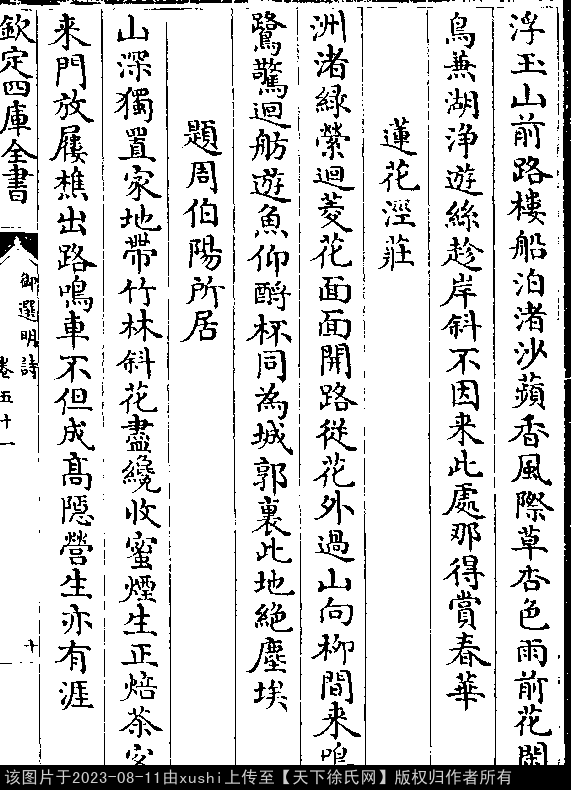 浮玉山前路樓船泊渚沙蘋香風際草杏色雨前花閑
鳥兼湖浄遊絲趁岸斜不因来此處那得賞春華
蓮花涇莊
洲渚緑縈迴菱花面面開路從花外過山向柳間来鳴
鷺驚迴舫遊魚仰酹杯同為城郭裏此地絶塵埃
題周伯陽所居
山深獨置家地帶竹林斜花盡纔收蜜煙生正焙茶客
来門放屨樵出路鳴車不但成髙隠營生亦有涯
欽定四庫全書
御選明詩
卷五十一
十
该图片于2023-08-11由xushi上传至【天下徐氏网】版权归作者所有